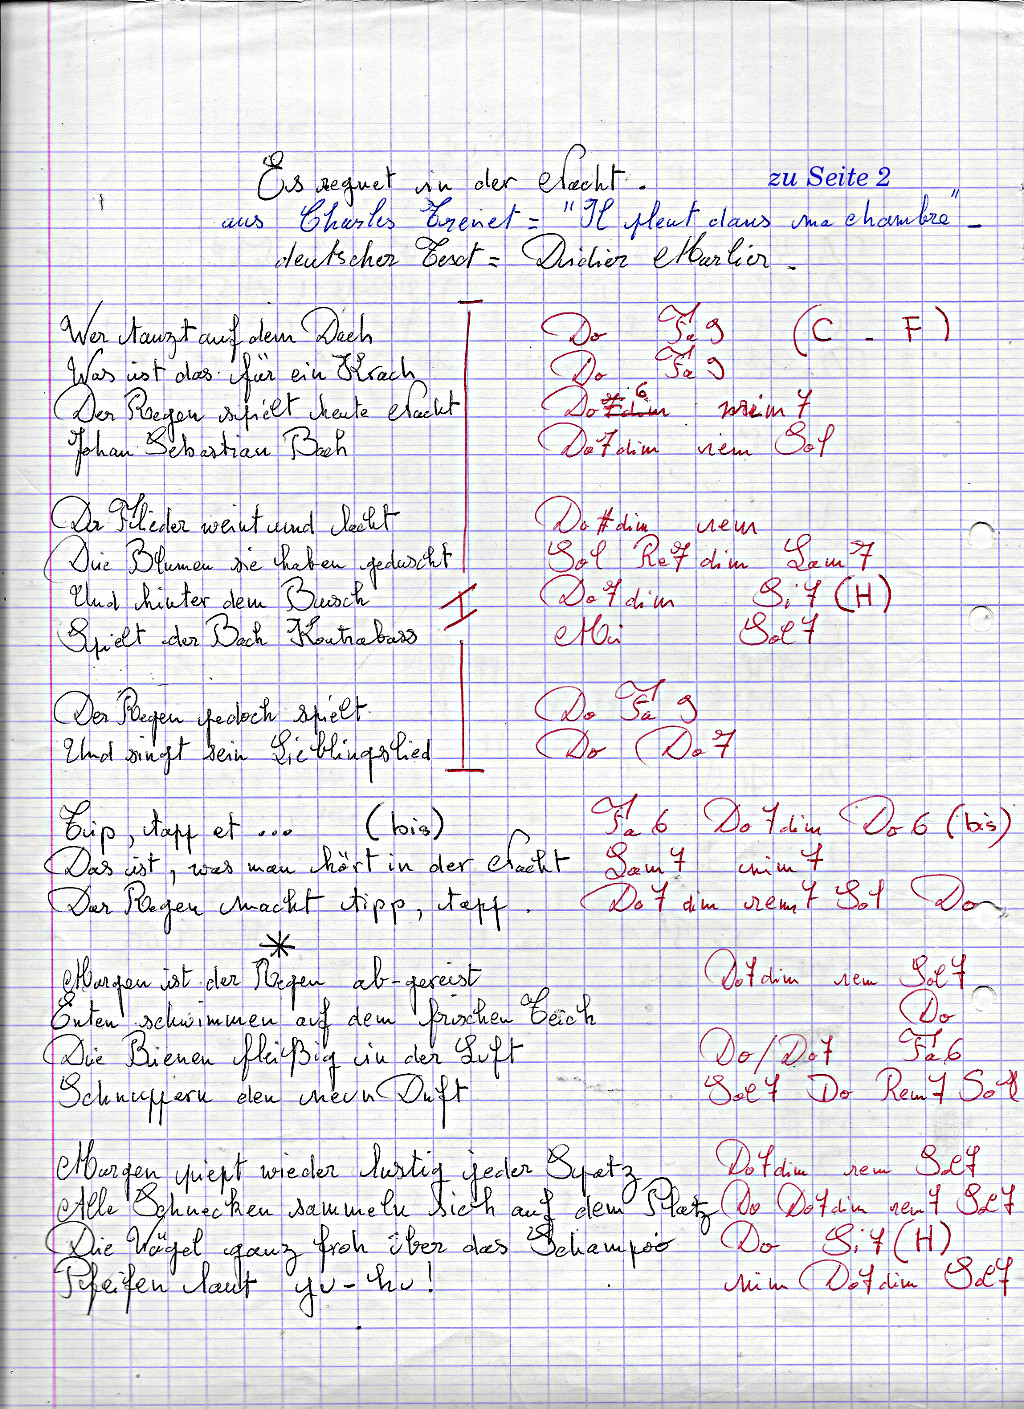 Es regnet in der Nacht.
zu Seite 2
aus Charles Trenet = "Il pleut dans ma chambre" -
deutscher Text = Didier Marlier -
Wer tanzt auf dem Dach Do Fa 9 (C - F)
Was ist das für ein Krach Do Fa 9
Der Regen spielt heute Nacht Do 6 mim 7
Johan Sebastian Bach Do7dim rem Sol
Der Flieder weint und lacht Do#dim rem
Die Blumen sie haben geduscht Sol Re7 dim Lam7
Und hinter dem Busch Do7dim Si7 (H)
Spielt der Bach Kontrabass Mi Sol7
Der Regen jedoch spielt Do Fa 9
Und singt sein Lieblingslied Do Do7
Trip, tapp et ... (bis) Fa 6 Do7dim Do 6 (bis)
Das ist, was man hört in der Nacht Lam7 mim7
Der Regen macht tipp, tapp. Do7 dim rem7 Sol Do
*
Morgen ist der Regen ab-gereist Do7dim rem Sol7
Enten schwimmen auf dem frischen Teich Do
Die Bienen fleißig in der Luft Do/Do7 Fa6
Schnuppern den neun Duft Sol7 Do Rem7 Sol
Morgen piept wieder lustig jeder Spatz Do7dim rem Sol7
Alle Schnecken sammeln sich auf dem Platz Do Do7dim rem7 Sol7
Die Vögel ganz froh über das Schampoo Do Si7 (H)
Pfeifen laut yu-hu! mim Do7dim Sol7